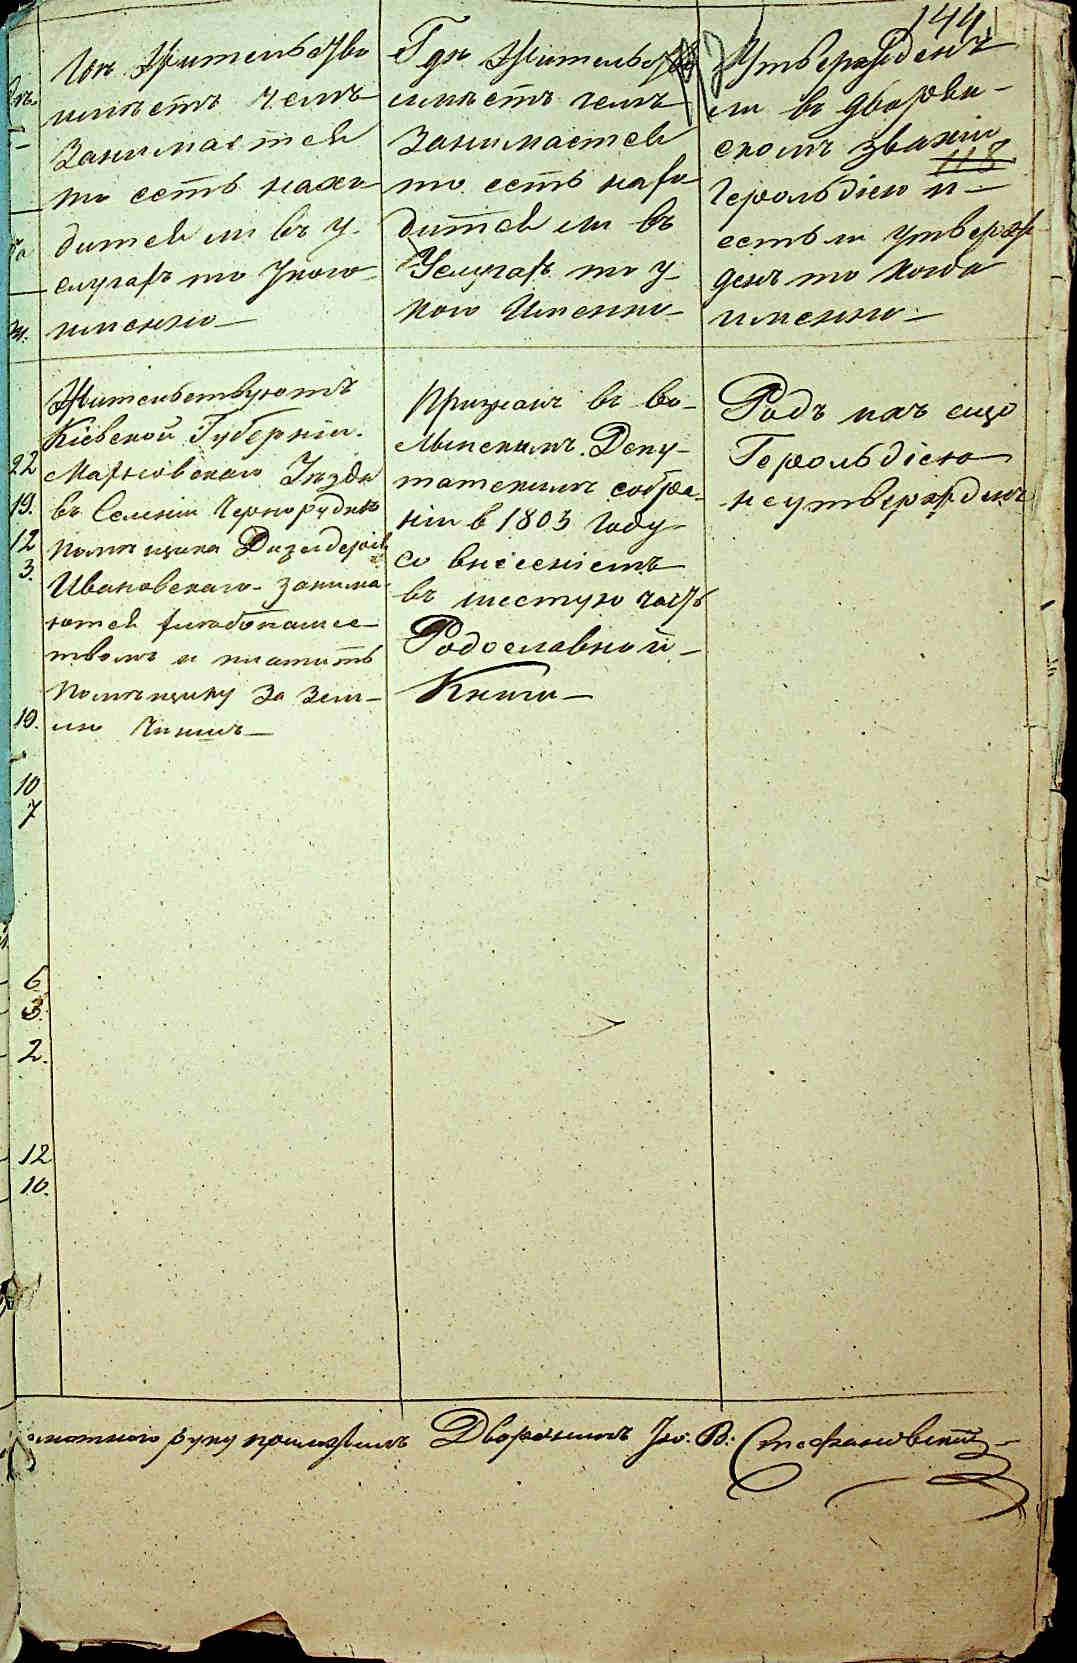 144
118
Гдѣ Жительство
имѣетъ чемъ
Занимается
то есть нахо
дится ли въ у-
слугахъ то укого
именно
Гдѣ Жительство
имѣетъ чемъ
Занимается
то есть нахо
дится ли въ
Услугахъ то у
кого Именно
Утвержденъ
ли въ дворян-
скомъ званіи
Герольдіею и
есть ли утверж
денъ то когда
именно
22
19.
12
3.
19.
10
7
6
3.
2.
12
10.
Жительствуютъ
Кіевской Губерніи.
Махновскаго Уѣзда
въ Селеніи Чернорудкѣ
помѣщика
Ивановскаго занима
ются хлебопаше
ствомъ и платитъ
помѣщику За зем-
лю Чиншъ
Признанъ въ во-
лынскимъ Депу-
татскимъ собра-
ніи в 1803 году
со внесеніемъ
въ шестую часть
Родословной
Книги
Родъ ихъ еще
Герольдіею
неутвержденъ
руку приложилъ Дворянинъ В. Стефановскій